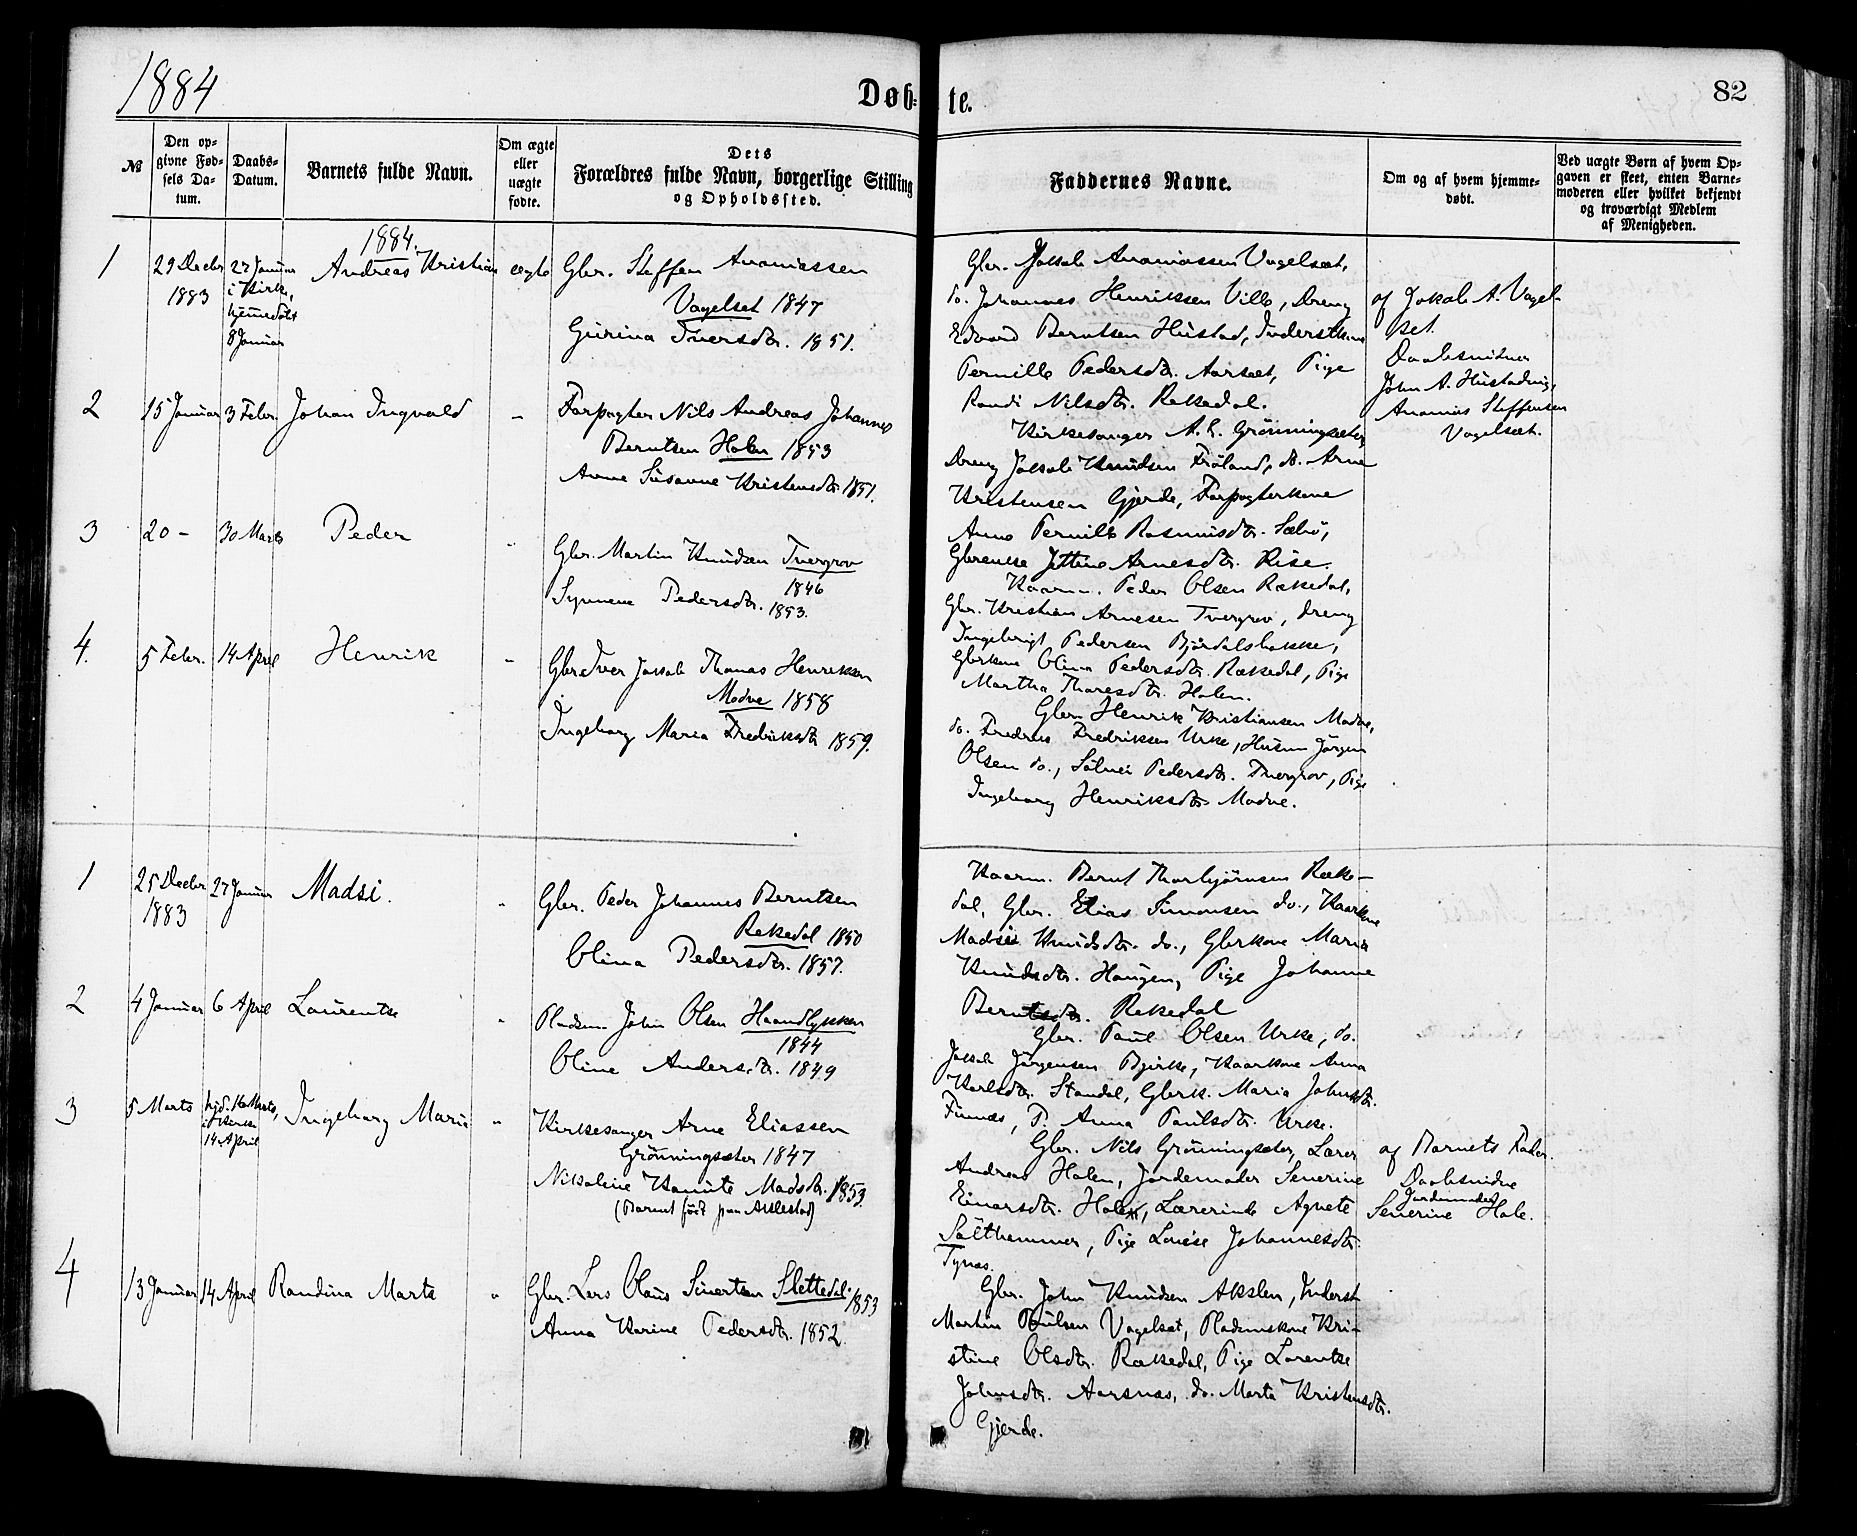 1884
Døb-
te.
82
№
Den op-
givne Fød-
sels Da-
tum.
Daabs-
Datum.
Barnets fulde Navn.
Om ægte
eller
uægte
fødte.
Dets
Forældres fulde Navn, borgerlige Stilling
og Opholdssted.
Faddernes Navne.
Om og af hvem hjemme-
døbt.
Ved uægte Børn af hvem Op-
gaven er skeet, enten Barne-
moderen eller hvilket bekjendt
og troværdigt Medlem
af Menigheden.
1884.
1
29 Decbr
1883
27 Januar
i Kirke,
hjemmedøbt
8 Januar
Andreas Kristian
ægte
Gbr. Steffen Ananiassen
Vagelset 1847
Gurina Iversdtr. 1851.
Gbr. Jakob Ananiassen Vagelsæt,
do. Johannes Henriksen Ville, Dreng
Edvard Berntsen Hustad,
Pernille Pedersdtr. Aarsæt, Pige
Randi Nilsdtr. Rekedal.
af Jakob A. Vagel-
set.
Daabsvidner
John A. Hustadnes,
Ananias Steffensen
Vagelsæt.
2
15 Januar
3 Febr.
Johan Ingvald
–
Forpagter Nils Andreas Johannes
Berntsen Holen 1853
Anne Susanne Kristensdtr. 1851.
Kirkesanger A. E. Grønningsæter,
Dreng Jakob Knudsen Frøland, do. Arne
Kristensen Gjerde, Forpagterkone
Anne Pernille Rasmusdtr. Sæbø,
Gbrenke Jettine Arnesdtr. Rise.
3
20 –
30 Marts
Peder
"
Gbr. Martin Knudsen Tvergrov
1846
Synneve Pedersdtr. 1853.
Kaarm. Peder Olsen Rekedal,
Gbr. Kristian Arnesen Tvergrov, Dreng
Ingebrigt Pedersen Bjørdalsbakke,
Gbrkone Olina Pedersdtr. Rækedal, Pige
Martha Tharesdtr. Holen.
4.
5 Febr.
14 April
Henrik
–
Gbr. Iver Jakob Thomas Henriksen
Modve 1858
Ingeborg Maria Fredriksdtr. 1859.
Gbr. Henrik Kristiansen Modve,
do. Fredrik Fredriksen Urke, Husm. Jørgen
Olsen do., Sølvei Pedersdtr. Tvergrov, Pige
Ingeborg Henriksdtr. Modve.
1
25 Decbr
1883
27 Januar
Madsi.
"
Gbr. Peder Johannes Berntsen
Rekedal 1850
Olina Pedersdtr. 1857.
Kaarm. Bernt Thorbjørnsen Ræke-
dal, Gbr. Elias Simonsen do., Kaarkone
Madsi Knudsdtr. do., Gbrkone Maria
Knudsdtr. Haugen, Pige Johanne
Berntsdtr. Rekedal
2
4 Januar
6 April
Laurentse
"
Pladsm. John Olsen Haandlykken
1844
Oline Andersdtr. 1849
Gbr. Paul Olsen Urke, do.
Jakob Jørgensen Bjerke, Kaarkone Anna
Karlsdtr. Standal, Gbrk. Maria Johnsdtr.
Finnes, P. Anna Paulsdtr. Urke.
3
5 Marts
hjd. 16 Marts,
i Kirken
14 April
Ingeborg Maria
"
Kirkesanger Arne Eliassen
Grønningsæter 1847
Nikoline Kamute Madsdtr. 1853.
(Barnet født paa Aklestad)
Gbr. Nils Grønningsæter, Lærer
Andreas Holen, Jordemoder Severine
Einarsdtr. Hole, Lærerinde Agnete
Salthammer, Pige Lovise Johannesdtr.
Tynes.
af Barnets Fader.
Daabsvidne
Jordemoder
Severine Hole.
4
13 Januar
14 April
Randina Marta
"
Gbr. Lars Olaus Sivertsen Slettedal 1853
Anna Karine Pedersdtr. 1852.
Gbr. John Knudsen Akslen, Inderst
Martin Paulsen Vagelset, Pladsmskone Kri-
stine Olsdtr. Rækedal, Pige Larentse
Johnsdtr. Aarsnæs, do. Marta Kristensdtr.
Gjerde.